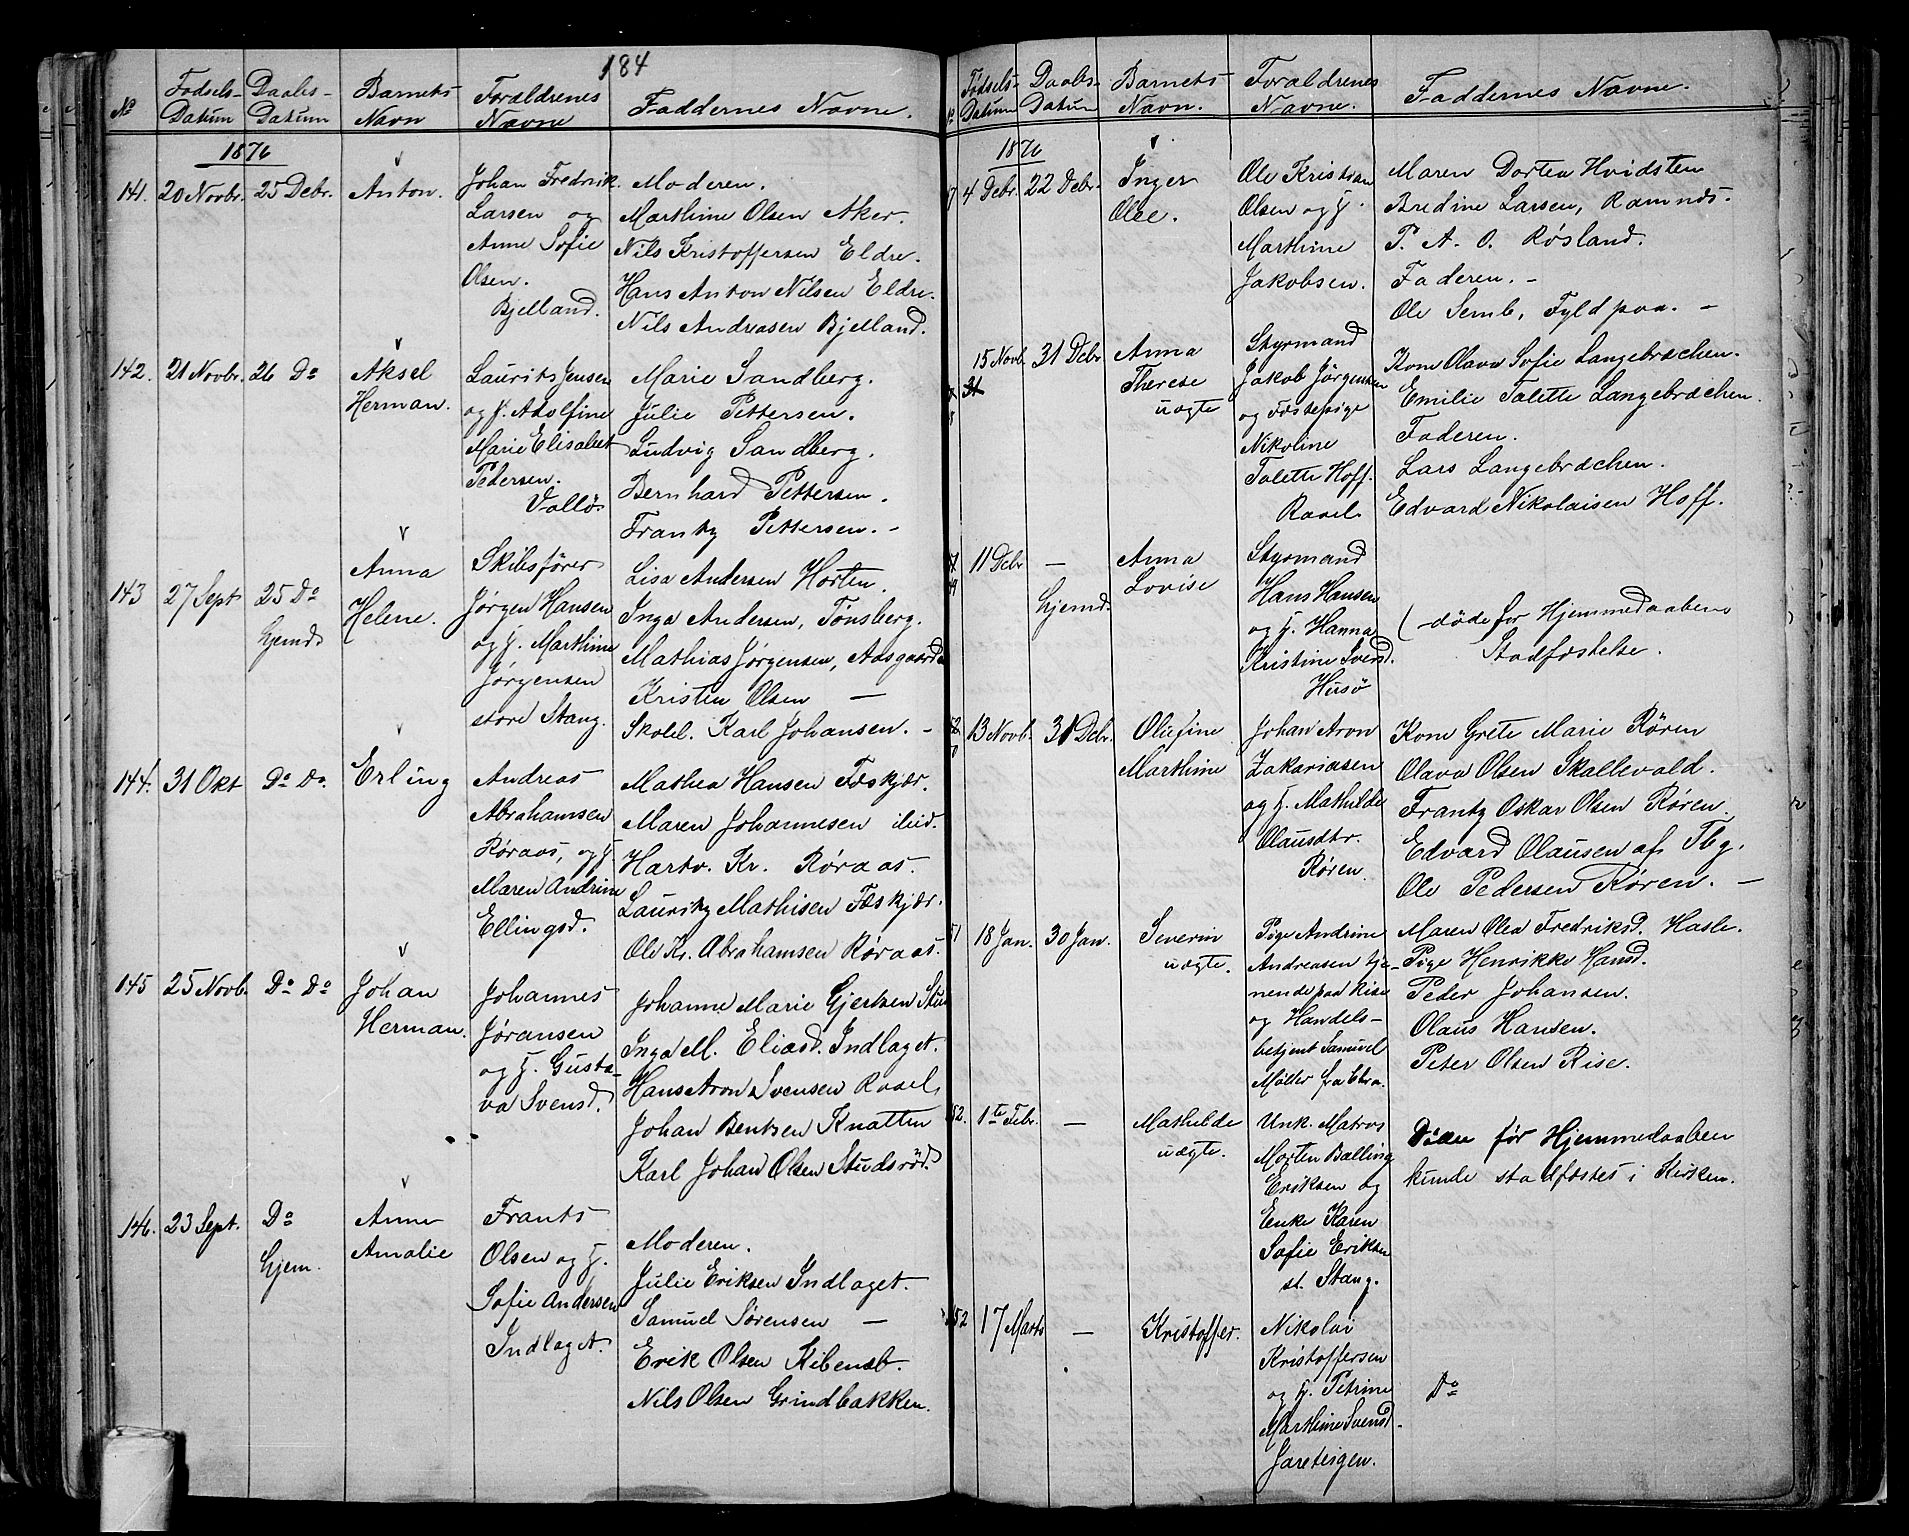 184
Nº Fødsels-Datum Daabs-Datum Barnets Navn Forældrenes Navne Faddernes Navne.
1876
141. 20 Novbr. 25 Debr. Anton.
Johan Fredrik
Larsen og
Anne Sofie
Olsen.
Bjelland.
Moderen.
Marthine Olsen Aker.
Nils Kristoffersen Eldre.
Hans Anton Nilsen Eldre.
Nils Andreasen Bjelland.
142. 21 Novbr. 26 Do Aksel
Herman.
Laurits Jensen
og H. Adolfine
Marie Elisabet
Pedersen.
Vallö
Marie Sandberg.
Julie Pettersen.
Ludvig Sandberg.
Bernhard Pettersen.
Frantz Pettersen. -
143 27 Sept 25 Do
hjemd.
Anna
Helene.
Skibsförer
Jørgen Hansen
og H. Marthine
Jørgensen
store Stang.
Lisa Andersen Horten.
Inga Andersen, Tönsberg.
Mathias Jørgensen, Aasgaard
Kristen Olsen —
Skolel. Karl Johansen. -
144. 31 Okt Do Do. Erling
Andreas
Abrahamsen
Røraas, og H.
Maren Andrine
Ellingsd.
Mathea Hansen Fæskjær.
Maren Johannesen ibid.
Hartv. Kr. Røraas.
Lauritz Mathisen Fæskjær.
Ole Kr. Abrahamsen Røraas.
145 25 Novb. Do Do Johan
Herman.
Johannes
Jøransen
og H. Gusta-
va Svensd.
Johanne Marie Gjertsen
Inga M. Eliasd. Indlaget.
Hans Aron Svensen Ravel
Johan Bentsen Knatten
Karl Johan Olsen Studsrød.
146. 23 Sept. Do
hjem.
Anne
Amalie
Frants
Olsen og H.
Sofie Andersen
Indlaget.
Moderen.
Julie Eriksen Indlaget.
Samuel Sørensen —
Erik Olsen
Nils Olsen Grindbakken.
Fødsels-Datum Daabs-Datum Barnets Navn. Forældrenes Navne. Faddernes Navne.
1876
4 Debr. 22 Debr. Inger
Olee.
Ole Kristian
Olsen og H.
Marthine
Jakobsen.
Maren Dortea Hvidsten
Bredine Larsen, Ramnds.
P. A. O. Røsland.
Faderen. -
Ole Semb, Fyldpaa. -
15 Novb. 31 Debr. Anna
Therese
uægte
Styrmand
Jakob Jörgensen
og Fæstepige
Nikoline
Talette Hoff.
Ravel
Kone Olava Sofie Langebræchen.
Emilie Talette Langebræchen.
Faderen.
Lars Langebræchen.
Edvard Nikolaisen Hoff.
11 Debr —
hjemd.
Anna
Lovise
Styrmand
Hans Hansen
og H. Hanna
Kristine Svensd.
Husö
(-döde før Hjemmedaabens
Stadfæstelse.
13 Novb. 31 Debr. Oliefine
Marthine
Johan Aron
Zakariasen
og H. Mathilde
Olausdtr.
Rören
Kone Grete Marie Rören
Olava Olsen Skallevald.
Frantz Oskar Olsen Røren
Edvard Olausen af Tbg.
Ole Pedersen Røren. —
51 18 Jan. 30 Jan. Severin
uægte.
Pige Andrine
Andreasen tje-
nende paa Rise
og Handels-
betjent Samuel
Møller fra Chra.
Maren Olea Fredriksd. Hasle.
Pige Henrikke Hansd.
Peder Johansen.
Olaus Hansen.
Peter Olsen Rise.
52. 1te Febr. — Mathilde
uægte.
Unk. Matros
Morten Balling
Eriksen og
Enke Karen
Sofie Eriksen
st. Stang.
Döde för Hjemmedaaben
kunde stadfæstes i Kirken.
52 17 Marts — Kristoffer.
Nikolai
Kristoffersen
og H. Petrine
Marthine Svensd.
Jareteigen.
Do